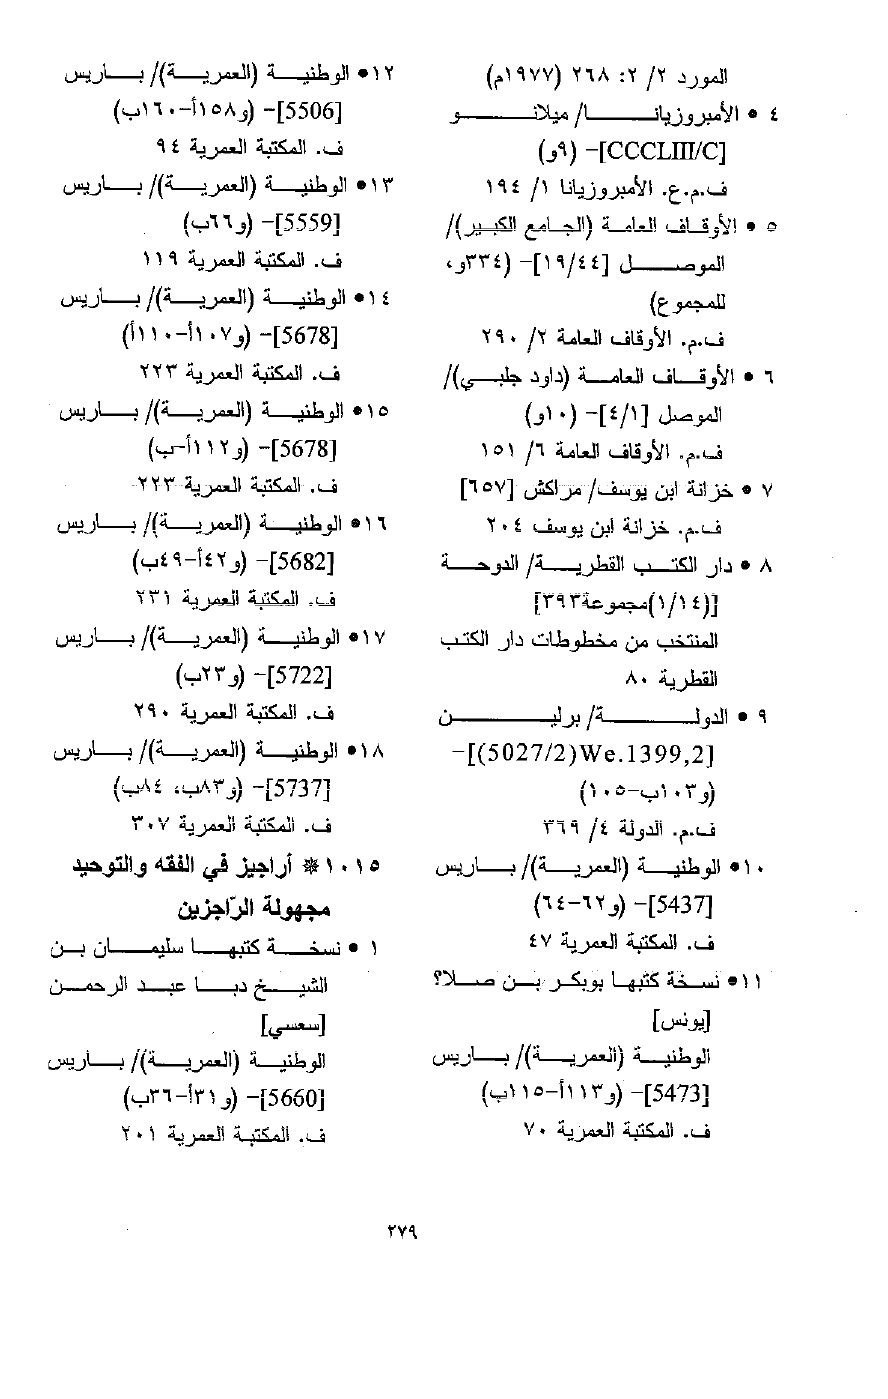 المورد ٢/ ٢: ٢٦٨ (١٩٧٧م)
٤ • الأمبروزيانا/ ميلانو
[CCCLIII/C]– (٩و)
ف.م.ع. الأمبروزيانا ١/ ١٩٤
٥ • الأوقاف العامة (الجامع الكبير)/
الموصل [١٩/٤٤]– (٣٣٤و،
للمجموع)
ف.م. الأوقاف العامة ٢/ ٢٩٠
٦ • الأوقاف العامة (داود جلبي)/
الموصل [٤/١]– (١٠و)
ف.م. الأوقاف العامة ٦/ ١٥١
٧ • خزانة ابن يوسف/ مراكش [٦٥٧]
ف.م. خزانة ابن يوسف ٢٠٤
٨ • دار الكتب القطرية/ الدوحة
[(١/١٤)مجموعة٣٩٣]
المنتخب من مخطوطات دار الكتب
القطرية ٨٠
٩ • الدولة/ برلين
[We.1399,2(5027/2)]–
(و١٠٣ب–١٠٥)
ف.م. الدولة ٤/ ٣٦٩
١٠• الوطنية (العمرية)/ باريس
[5437]– (و٦٢–٦٤)
ف. المكتبة العمرية ٤٧
١١• نسخة كتبها بوبكر بن صلا؟
[يونس]
الوطنية (العمرية)/ باريس
[5473]– (و١١٣أ–١١٥ب)
ف. المكتبة العمرية ٧٠
١٢• الوطنية (العمرية)/ باريس
[5506]– (و١٥٨أ–١٦٠ب)
ف. المكتبة العمرية ٩٤
١٣• الوطنية (العمرية)/ باريس
[5559]– (و٦٦ب)
ف. المكتبة العمرية ١١٩
١٤• الوطنية (العمرية)/ باريس
[5678]– (و١٠٧أ–١١٠أ)
ف. المكتبة العمرية ٢٢٣
١٥• الوطنية (العمرية)/ باريس
[5678]– (و١١٢أ–ب)
ف. المكتبة العمرية ٢٢٣
١٦• الوطنية (العمرية)/ باريس
[5682]– (و٤٢أ–٤٩ب)
ف. المكتبة العمرية ٢٣١
١٧• الوطنية (العمرية)/ باريس
[5722]– (و٢٣ب)
ف. المكتبة العمرية ٢٩٠
١٨• الوطنية (العمرية)/ باريس
[5737]– (و٨٣ب، ٨٤ب)
ف. المكتبة العمرية ٣٠٧
١٠١٥ * أراجيز في الفقه والتوحيد
مجهولة الرّاجزين
١ • نسخة كتبها سليمان بن
الشيخ دبا عبد الرحمن
[سعسي]
الوطنية (العمرية)/ باريس
[5660]– (و٣١أ–٣٦ب)
ف. المكتبة العمرية ٢٠١
٢٧٩